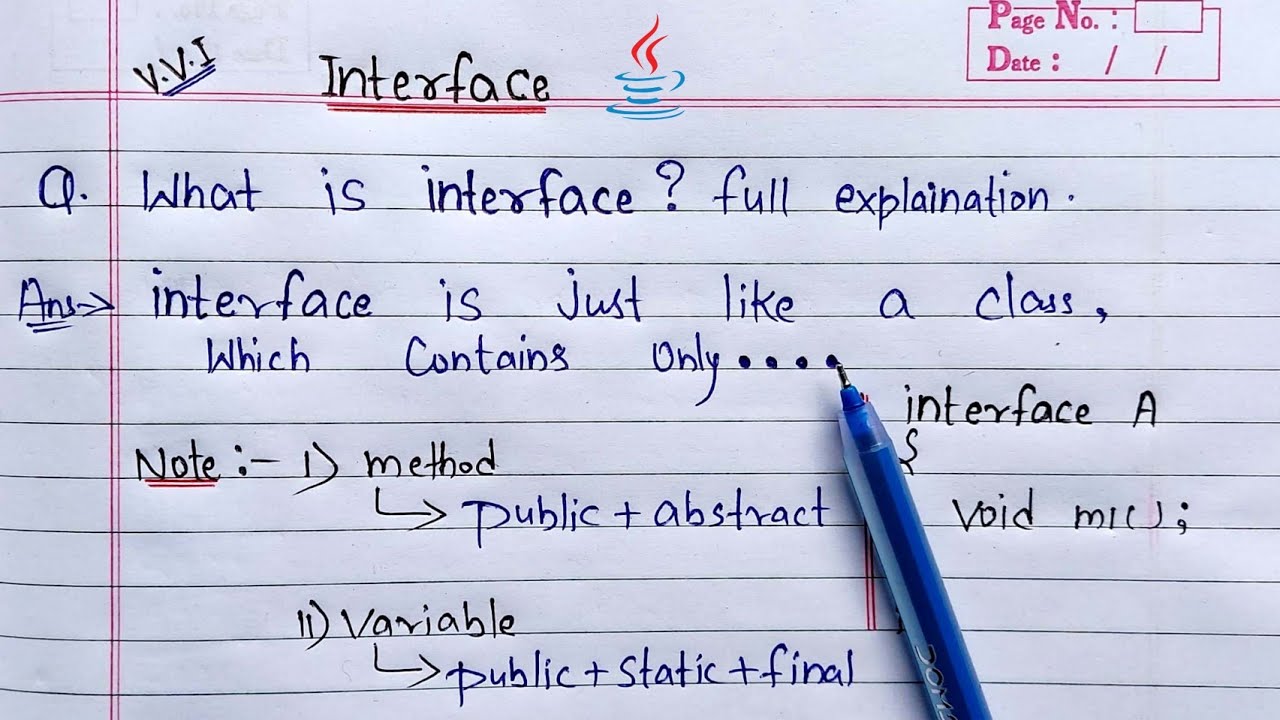 Page No. :
Date : / /
V.V.I
Interface
Q. What is interface? full explaination.
Ans→ interface is just like a class,
Which Contains Only....
interface A
{
Note :- I) method
public + abstract
void m1();
II) Variable
public + static + final